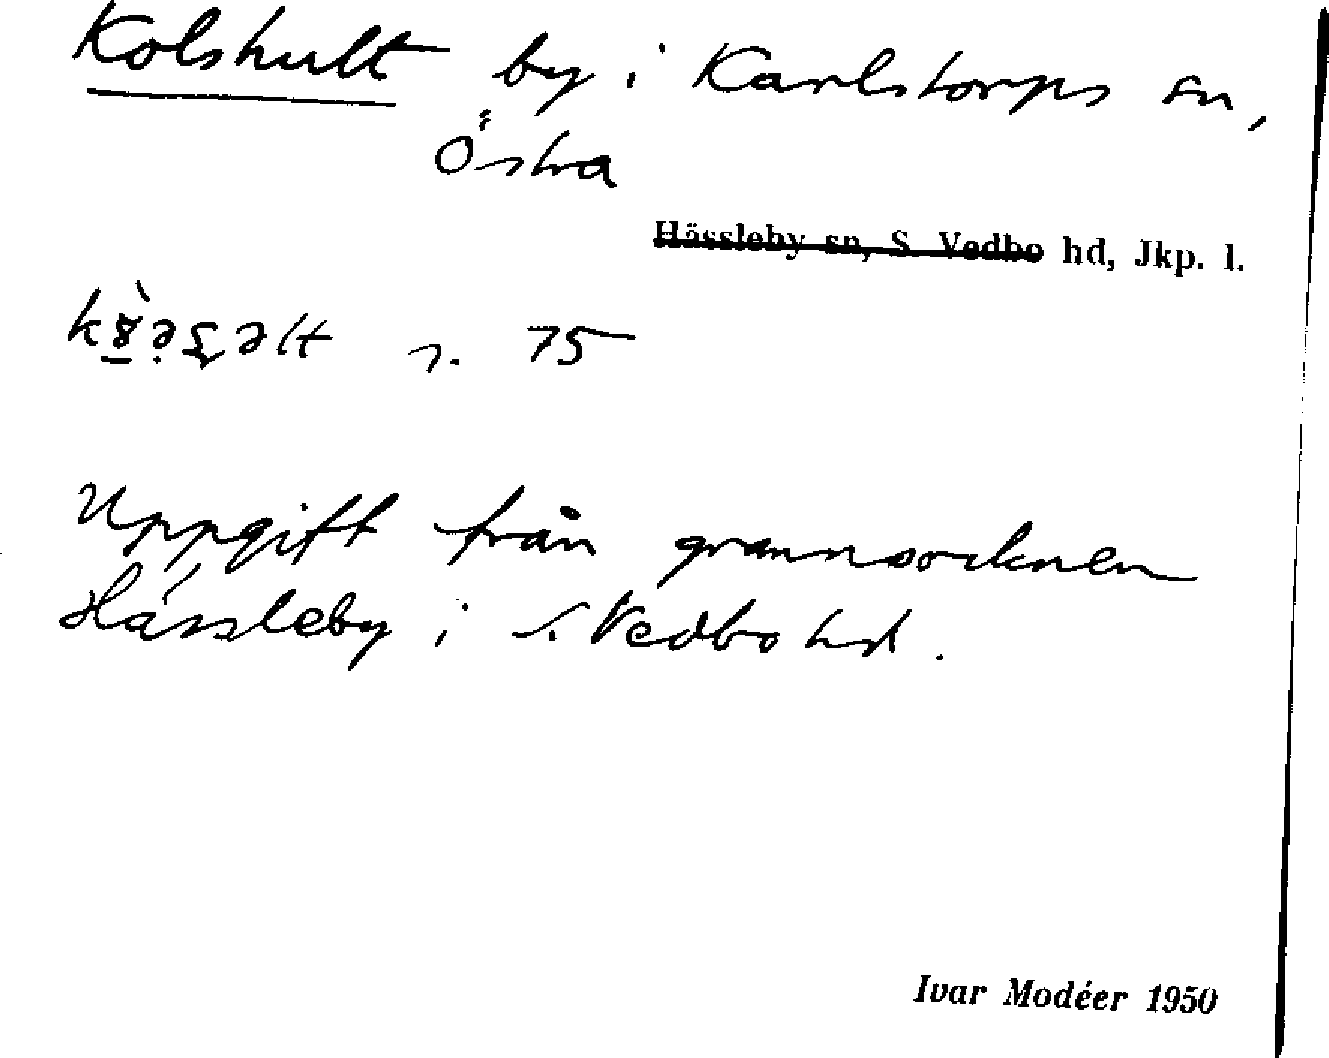 Kolshult by i Karlstorps sn,
Östra
Hässleby sn, S. Vedbo hd, Jkp. l.
75
Uppgift från grannsocknen
Hässleby i S. Vedbo hd.
Ivar Modéer 1950